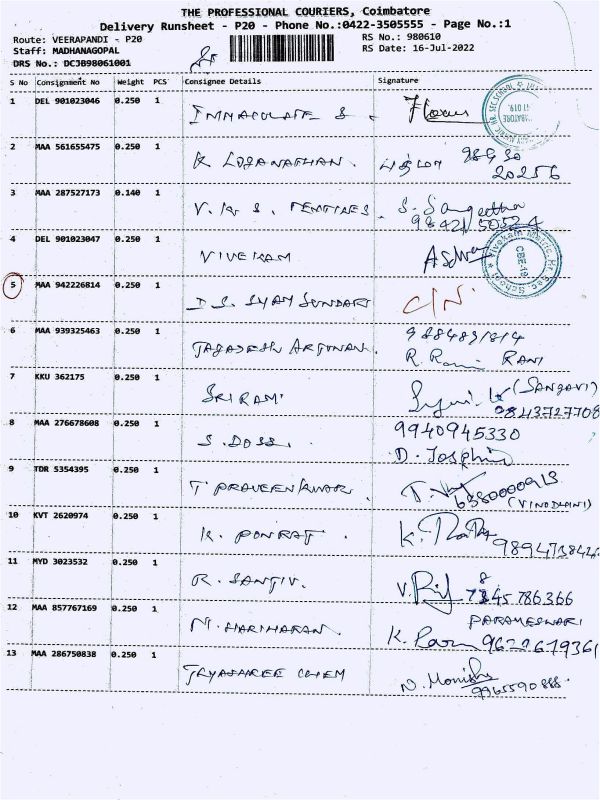 THE PROFESSIONAL COURIERS, Coimbatore
Delivery Runsheet - P20 - Phone No.:0422-3505555 - Page No.:1
Route: VEERAPANDI - P20 RS No.: 980610
Staff: MADHANAGOPAL RS Date: 16-Jul-2022
DRS No.: DCJB98061001
S No Consignment No Weight PCS Consignee Details Signature
1 DEL 901023046 0.250 1 IMMACULATE S.
2 MAA 561655475 0.250 1 K LOGANATHAN. பத்மா 98430
20256
3 MAA 287527173 0.140 1 V. K. S. S. Sangeetha
98421 50524
4 DEL 901023047 0.250 1 VIVEKAM
5 MAA 942226814 0.250 1 D. S. SYAM SUNDARI C/N
6 MAA 939325463 0.250 1 JAGADESH ARJUNAN.
R. Rani RANI
7 KKU 362175 0.250 1 SRIRAM (SANGAVI)
9843727708
8 MAA 276678608 0.250 1 S. DOSS. 9940945330
D. Josphin
9 TDR 5354395 0.250 1 T PRAVEENKUMAR.
(VINODHINI)
10 KVT 2620974 0.250 1 K. PONRAJ.
11 MYD 3023532 0.250 1 R. SANJIV. 786366
12 MAA 857767169 0.250 1 N. HARIHARAN. PARAMESWARI
13 MAA 286750838 0.250 1 JAYASHREE CHEM N. Monisha
9965590888.